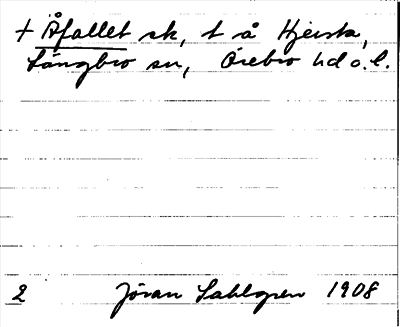 + Åfallet sk, t å Hjersta,
Längbro sn, Örebro hd o.l.
2 Jöran Sahlgren 1908